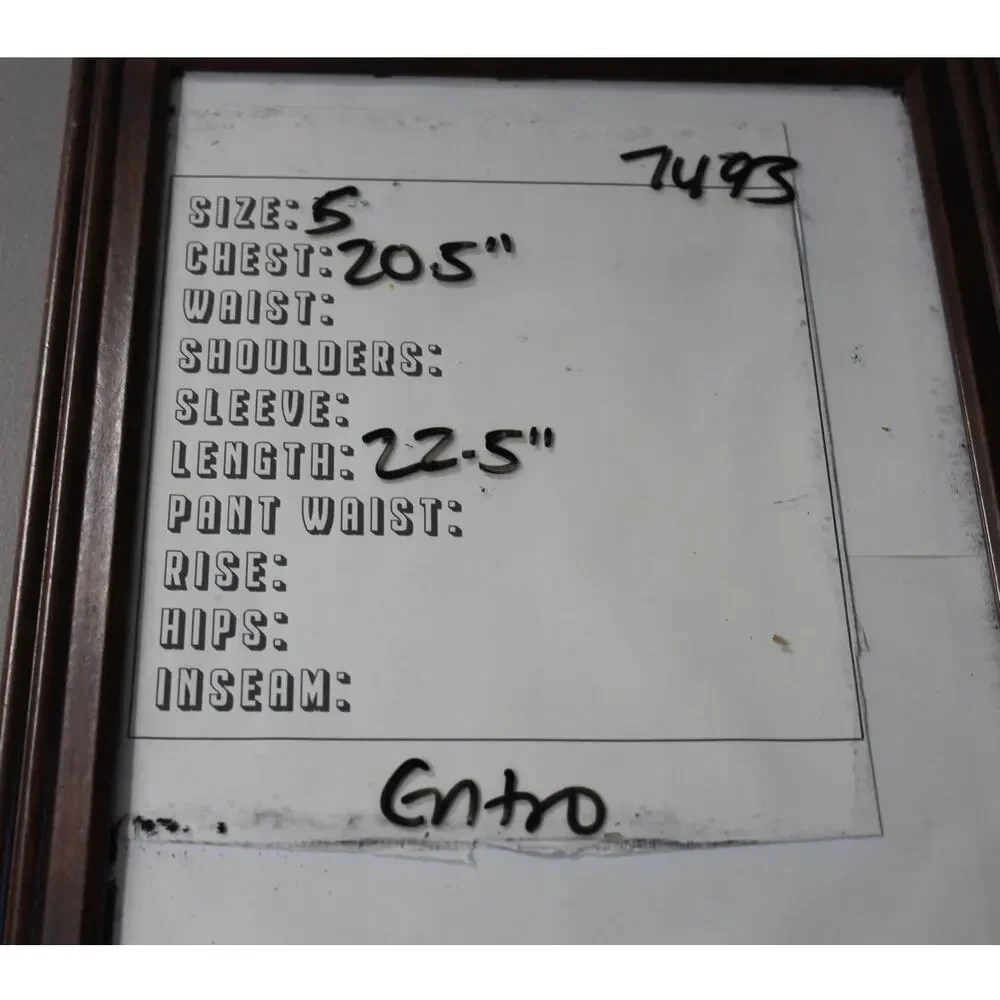 7493
SIZE: 5
CHEST: 20.5"
WAIST:
SHOULDERS:
SLEEVE:
LENGTH: 22.5"
PANT WAIST:
RISE:
HIPS:
INSEAM:
Entro